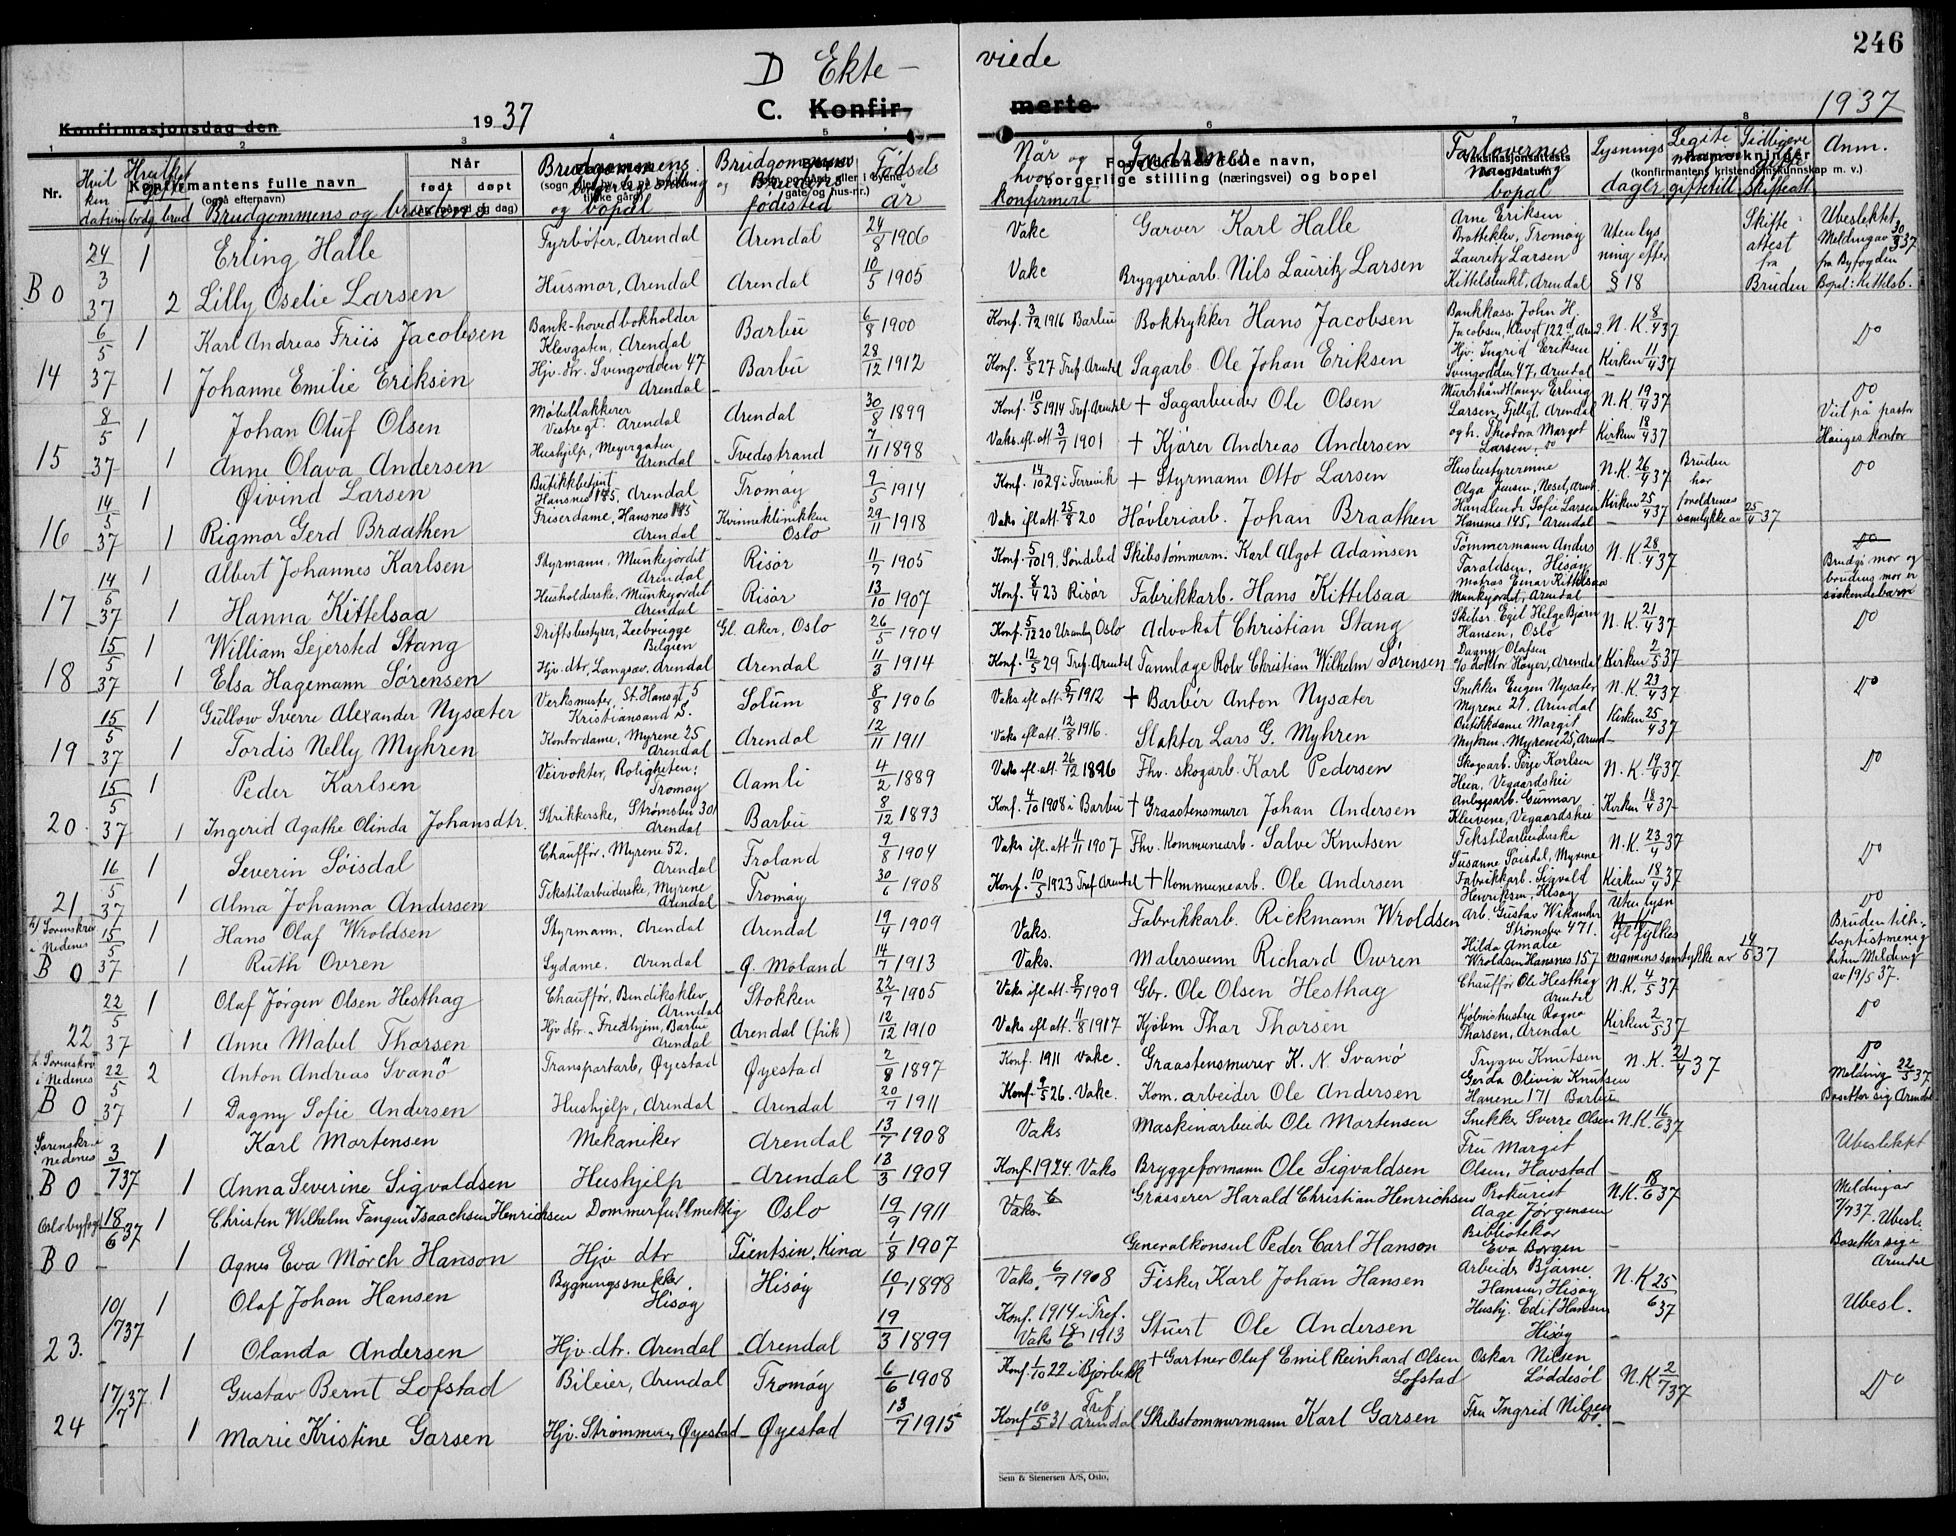 D Ekte- viede
246
Konfirmasjonsdag den 1937 C. Konfir- merte 1937
1 2 3 4 5 6 7 8
Nr. Hvilken datum Hvilket Konfirmantens fulle navn (også efternavn) Når født døpt Brudgommens stilling og bopæl Brudgommens og Brudens fødested Fødselsår
brudg. brud Brudgommens og brudens
Når og hvor konfirmert Foreldrenes fulle navn, borgerlige stilling (næringsvei) og bopel Fædrenes Forlovernes navn og bopæl Lysnings dager Anmerkninger (konfirmantens kristendomskunnskap m. v.) Tidligere gifte skifteatt Anm.
24/3 37 1 Erling Halle Fyrbøter, Arendal Arendal 24/8 1906 Vakc Garver Karl Halle Arne Eriksen Bratteklev, Tromøy Uten lysning efter § 18 Skifteattest fra Bruden Ubeslektet Melding av 30/3 37 fra Byfogden
B 0 2 Lilly Oselie Larsen Husmor, Arendal Arendal 10/5 1905 Vakc Bryggeriarb. Nils Lauritz Larsen Lauritz Larsen Kittelsbukt, Arendal Bopel: Kittelsb.
6/5 37 1 Karl Andreas Friis Jacobsen Bank-hovedbokholder Klevgaten, Arendal Barbu 6/8 1900 Konf. 3/12 1916 Barbu Boktrykker Hans Jacobsen Bankkass. John H. Jacobsen, N. K. 8/4 37 Do
14 1 Johanne Emilie Eriksen Hjv. dtr. Svingodden 47 Arendal Barbu 28/12 1912 Konf. 8/5 27 Tref. Arendal Sagarb. Ole Johan Eriksen Hjv. Ingrid Eriksen Svingodden 47, Arendal Kirken 11/4 37
8/5 37 1 Johan Oluf Olsen Møbellakkerer Vestregt. Arendal Arendal 30/8 1899 Konf. 10/5 1914 Tref. Arendal + Sagarbeider Ole Olsen Erling Larsen, Fjellgt, Arendal N. K. 19/4 37 Do Viet på pastor Hauges kontor
15 1 Anne Olava Andersen Hushjelp, Meyergaten Arendal Tvedestrand 7/11 1898 Vaks. efl. att 3/7 1901 + Kjører Andreas Andersen og h. Theodora Margot Larsen, do Kirken 18/4 37
14/5 37 1 Øivind Larsen Butikkbetjent Hansnes 145, Arendal Tromøy 9/5 1914 Konf. 14/10 29 i + Styrmann Otto Larsen Husbestyrerinne Olga Jensen, N. K. 26/4 37 Bruden har foreldrenes samtykke av 25/4 37 Do
16 1 Rigmor Gerd Braathen Friserdame, Hansnes 145 Arendal Kvinneklinikken Oslo 29/11 1918 Vaks ifl att. 25/8 20 Høvleriarb. Johan Braathen Sofie Larsen Hansnes 145, Arendal Kirken 25/4 37
14/5 37 1 Albert Johannes Karlsen Styrmann, Munkejordet Arendal Risør 11/7 1905 Konf. 5/10 19. Søndeled Skibstømmerm. Karl Algot Adamsen Tømmermann Anders Taraldsen, Hisøy N. K. 28/4 37 Do Brudgs mor og brudens mor er søskendebarn
17 1 Hanna Kittelsaa Husholderske, Munkejordet Arendal Risør 13/10 1907 Konf. 8/4 23 Risør Fabrikkarb. Hans Kittelsaa Matros Einar Kittelsaa Munkejordet, Arendal
15/5 37 1 William Sejersted Stang Driftsbestyrer, Zeebrügge Belgien Gl. aker, Oslo 26/5 1904 Konf. 5/12 20 Uranienb. Oslo Advokat Christian Stang Skibsr. Egil Helge Bjørn Hansen, Oslo N. K. 21/4 37 Do
18 1 Elsa Hagemann Sørensen Hjv. dtr, Langsæ, Arendal Arendal 11/3 1914 Konf. 12/5 29 Tref. Arendal Tannlæge Rolv Christian Wilhelm Sørensen Dagny Olafsen c/o doktor Høyer, Arendal Kirken 2/5 37
15/5 37 1 Güllow Sverre Alexander Nysæter Verksmester, St. Hansgt 5 Kristiansand S. Solum 8/8 1906 Vaks efl att. 5/7 1912 + Barbér Anton Nysæter Snekker Eugen Nysæter Myrene 21, Arendal N. K. 23/4 37 Do
19 1 Tordis Nelly Myhren Kontordame, Myrene 25 Arendal Arendal 12/11 1911 Vaks efl att. 12/8 1916. Slakter Lars G. Myhren Butikkdame Margit Myhren. Myrene 25, Arend Kirken 25/4 37
15/5 37 1 Peder Karlsen Veivokter, Roligheten: Tromøy Aamli 4/2 1889 Vaks efl. att. 26/12 1896 Fhv. skogarb. Karl Pedersen Skogarb. Terje Karlsen Heia, Vegaardshei N. K. 19/4 37 Do
20. 1 Ingerid Agathe Olinda Johansdtr. Strikkerske, Strømsbu 301 Arendal Barbu 8/12 1893 Konf. 4/10 1908 i Barbu + Graastensmurer Johan Andersen Anleggsarb. Gunnar Kleivene, Vegaardshei Kirken 18/4 37
16/5 37 1 Severin Søisdal Chauffør, Myrene 52. Arendal Froland 9/8 1904 Vaks ifl. att 4/11 1907 Fhv. Kommunearb. Salve Knutsen Tekstilarbeiderske Susanne Søisdal, Myrene N. K. 23/4 37 Do
21 1 Alma Johanna Andersen Tekstilarbeiderske, Myrene Arendal Tromøy 30/6 1908 Konf. 10/5 1923 Tref Arendal + Kommunearb. Ole Andersen Fabrikkarb. Sigvald Henriksen, Hisøy Kirken 18/4 37
Sorenskri i Nedenes 15/5 37 1 Hans Olaf Wroldsen Styrmann, Arendal Arendal 19/4 1909 Vaks. Fabrikkarb. Rickmann Wroldsen Arb. Gustav Wikander Strømsbu 471. Uten lysn ifl fylkesmannens samtykke av 14/5 37 Do Bruden tilh. baptistmenigheten Melding av 19/5 37.
B 0 1 Ruth Ovren Sydame. Arendal Ø. Moland 14/7 1913 Vaks. Malersvenn Richard Owren Hilda Amalie Wroldsen Hansnes 157
22/5 37 1 Olaf Jørgen Olsen Hesthag Chauffør, Bendiksklev Arendal Stokken 22/7 1905 Vaks ifl att. 8/7 1909 Gbr. Ole Olsen Hesthag Chauffør Ole Hesthag Arendal N. K. 4/5 37 Do
22 1 Anne Mabel Thorsen Hjv dtr. Fredhjem, Barbu Arendal Arendal (frik) 12/12 1910 Vaks efl att. 11/8 1917 Kjøbm Thor Thorsen Kjøbmhustru Ragna Thorsen, Arendal Kirken 2/5 37
Sorenskri i Nedenes 22/5 37 2 Anton Andreas Svanö Transportarb, Øyestad Øyestad 2/8 1897 Konf. 1911 vakc. Graastensmurer K. N. Svanö Trygve Knutsen N. K. 21/4 37 Do Melding 22/5 37.
B 0 1 Dagny Sofie Andersen Hushjelp, Arendal Arendal 20/7 1911 Konf. 9/5 26. Vakc. Kom. arbeider Ole Andersen Gerda Olivia Knutsen 171 Barbu Bosetter sig Arendal
Sorenskri Nedenes 3/7 37 1 Karl Mortensen Mekaniker Arendal 13/7 1908 Vaks Maskinarbeider Ole Mortensen Snekker Sverre Olsen N. K. 16/6 37 Ubeslektet
B 0 1 Anna Severine Sigvaldsen Hushjelp Arendal 13/3 1909 Konf. 1924. Vaks Bryggeformann Ole Sigvaldsen Fru Margit Olsen, Havstad
Oslo byfogd 18/6 37 1 Christen Wilhelm Fangen Isaachsen Henrichsen Dommerfullmektig Oslo 19/9 1911 Vaks. Grosserer Harald Christian Henrichsen Prokurist Aage Jørgensen N. K. 18/6 37 Melding av 7/7 37. Ubesl.
B 0 1 Agnes Eva Mörch Hanson Hjv dtr Tientsin, Kina 1/8 1907 Generalkonsul Peder Carl Hanson Bibliotekar Eva Borgen Bosetter sig i Arendal
10/7 37 1 Olaf Johan Hansen Bygningssnekker. Hisøy Hisøy 10/1 1898 Vaks. 6/7 1908 Fisker Karl Johan Hansen Arbeider Bjarne Hansen, Hisøy N. K 25/6 37 Ubesl.
23. 1 Olanda Andersen Hjv. dtr. Arendal Arendal 19/3 1899 Konf. 1914 i Tref. Vaks 18/6 1913 Stuert Ole Andersen Hushj. Edit Hansen Hisøy
17/7 37 1 Gustav Bernt Lofstad Bileier, Arendal Tromøy 6/6 1908 Konf. 1/10 22 i Bjorbekk + Gartner Oluf Emil Reinhard Olsen Lofstad Oskar Nilsen Løddesøl N. K 2/7 37 Do
24 1 Marie Kristine Garsen Hjv. Strømmen, Øyestad Øyestad 13/7 1915 Konf 10/5 31 Tref. Arendal Skibstømmermann Karl Garsen Fru Ingrid Nilsen do.
Sem & Stenersen A/S, Oslo,